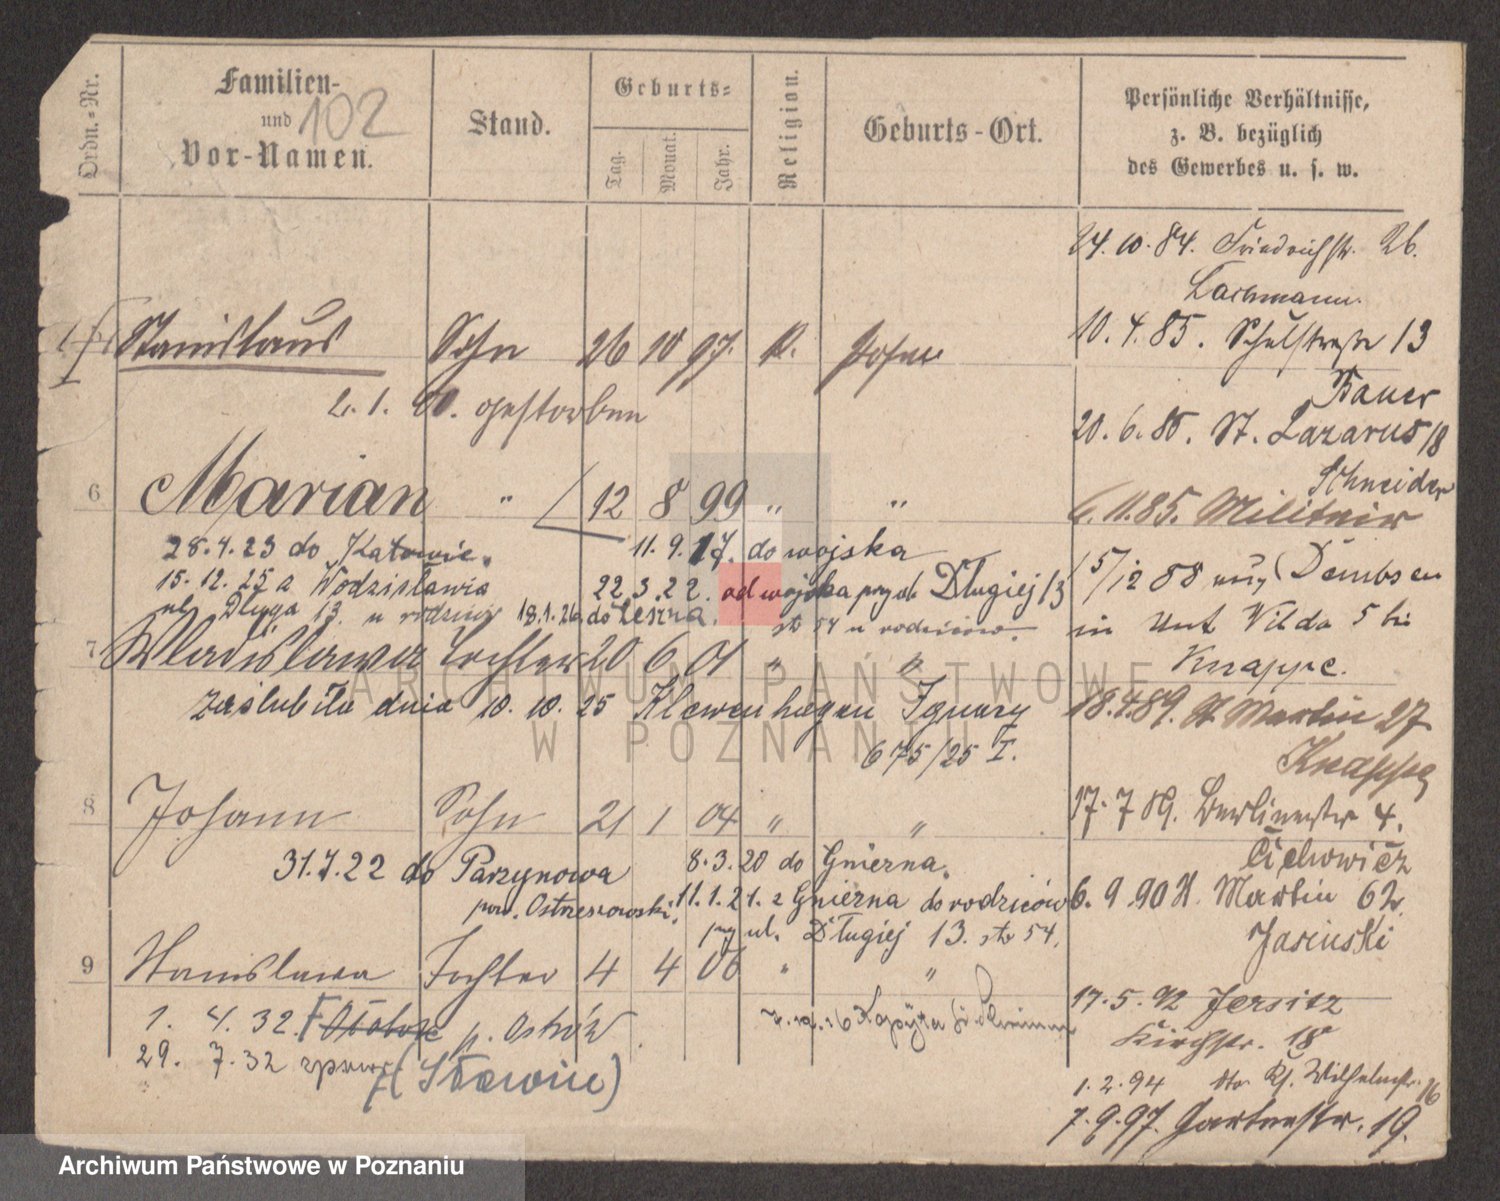 Ordn.-Nr.
Familien-
und
Vor-Namen.
102
Stand.
Geburts-
Tag.
Monat.
Jahr.
Religion.
Geburts-Ort.
Persönliche Verhältnisse,
z. B. bezüglich
des Gewerbes u. s. w.
Stanislaus Sohn 26 10 97. K. Posen
2. 1. 00. gestorben
6 Marian " 12 8 99 " "
28.4.23 do Katowic. 11.9.17. do wojska
15.12.25 z Wodzisławia 22.3.22. od wojska przy ul. Długiej 13
ul Długa 13. u rodziców 18.1.26 do Leszna. str 54 u rodziców.
7 Wladislawa Tochter 20 6 01 " "
zaślubiła dnia 10. 10. 25 Klawenhagen Ignacy
675/25 I.
8 Johann Sohn 21 1 04 " "
31.7.22 do Parzynowa 8.3.20 do Gniezna.
pow. Ostrzeszowski. 11.1.21. z Gniezna do rodziców
przy ul. Długiej 13. str 54.
9 Stanislawa Tochter 4 4 06 " "
1. 4. 32. p. Ostrów
29. 7. 32
24.10.84. Friedrichstr. 26.
Lachmann.
10.4.85. Schulstrasse 13
Bauer
20.6.85. St. Lazarus 18
Schneider
6.11.85. Militair
15/12 88 aus Dembsen
in Unt Wilda 5 bei
Knappe.
18.4.89. St Martin 27
Knappe
17.7 89. Berlinerstr 4.
Cichowicz
6.9.90 St. Martin 62.
Jasinski
17.5.92 Jersitz
Kirchstr. 18
1.2.94 Wilhelmstr. 16
7.9.97. Gartenstr. 19.
ARCHIWUM PAŃSTWOWE
W POZNANIU
Archiwum Państwowe w Poznaniu